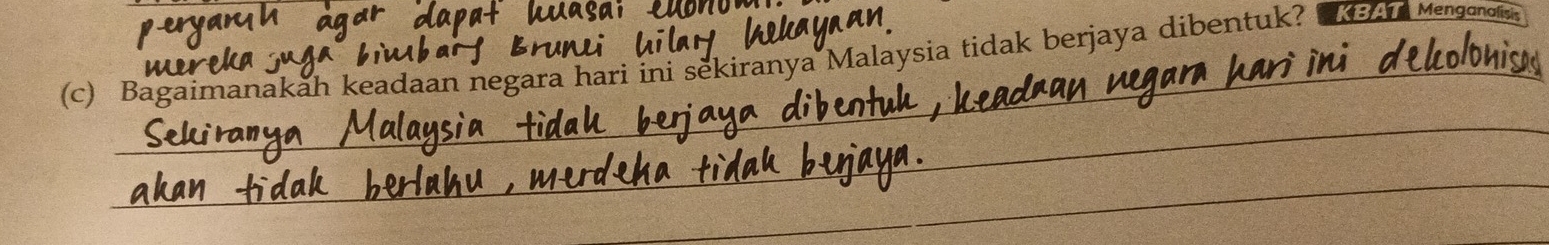 pengaruh agar dapat kuasai ekonomi.
mereka juga bimbang Brunei hilang kekayaan.
(c) Bagaimanakah keadaan negara hari ini sekiranya Malaysia tidak berjaya dibentuk? KBAT Menganalisis
Sekiranya Malaysia tidak berjaya dibentuk, keadaan negara hari ini dekolonisasi
akan tidak berlaku, merdeka tidak berjaya.